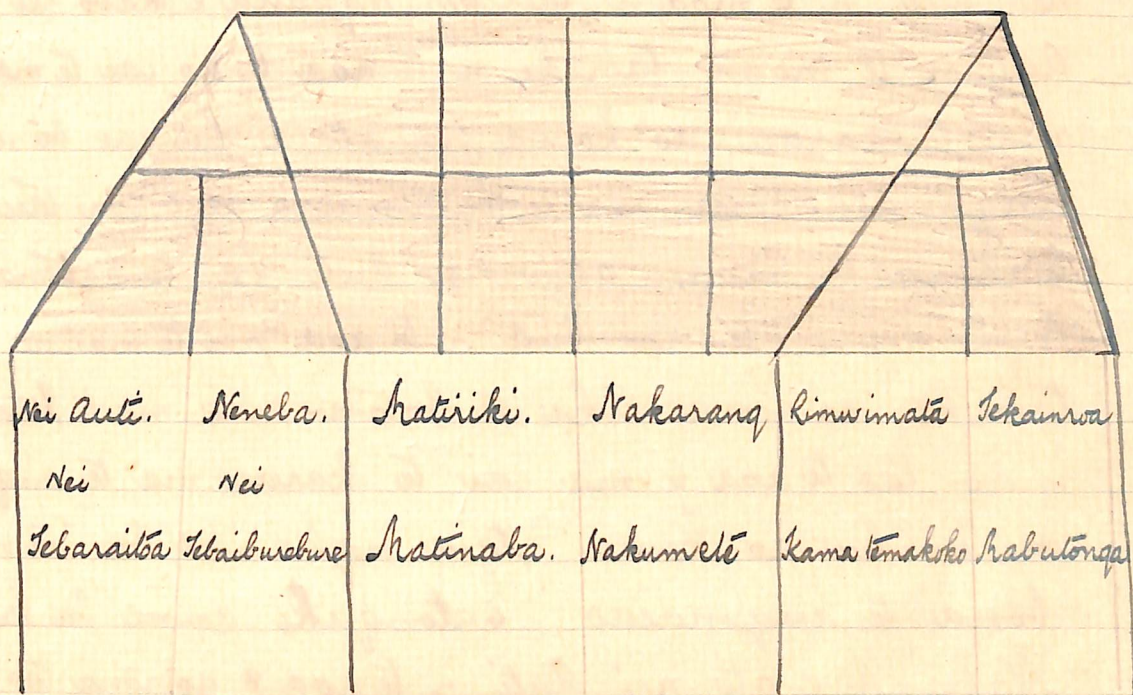 Nei Auti. Neneba. Matiriki. Nakarang Rimwimata Tekainroa
Nei Nei
Tebaraitoa Tebaiburebure Matinaba. Nakumete Kama temakoko Rabutonga